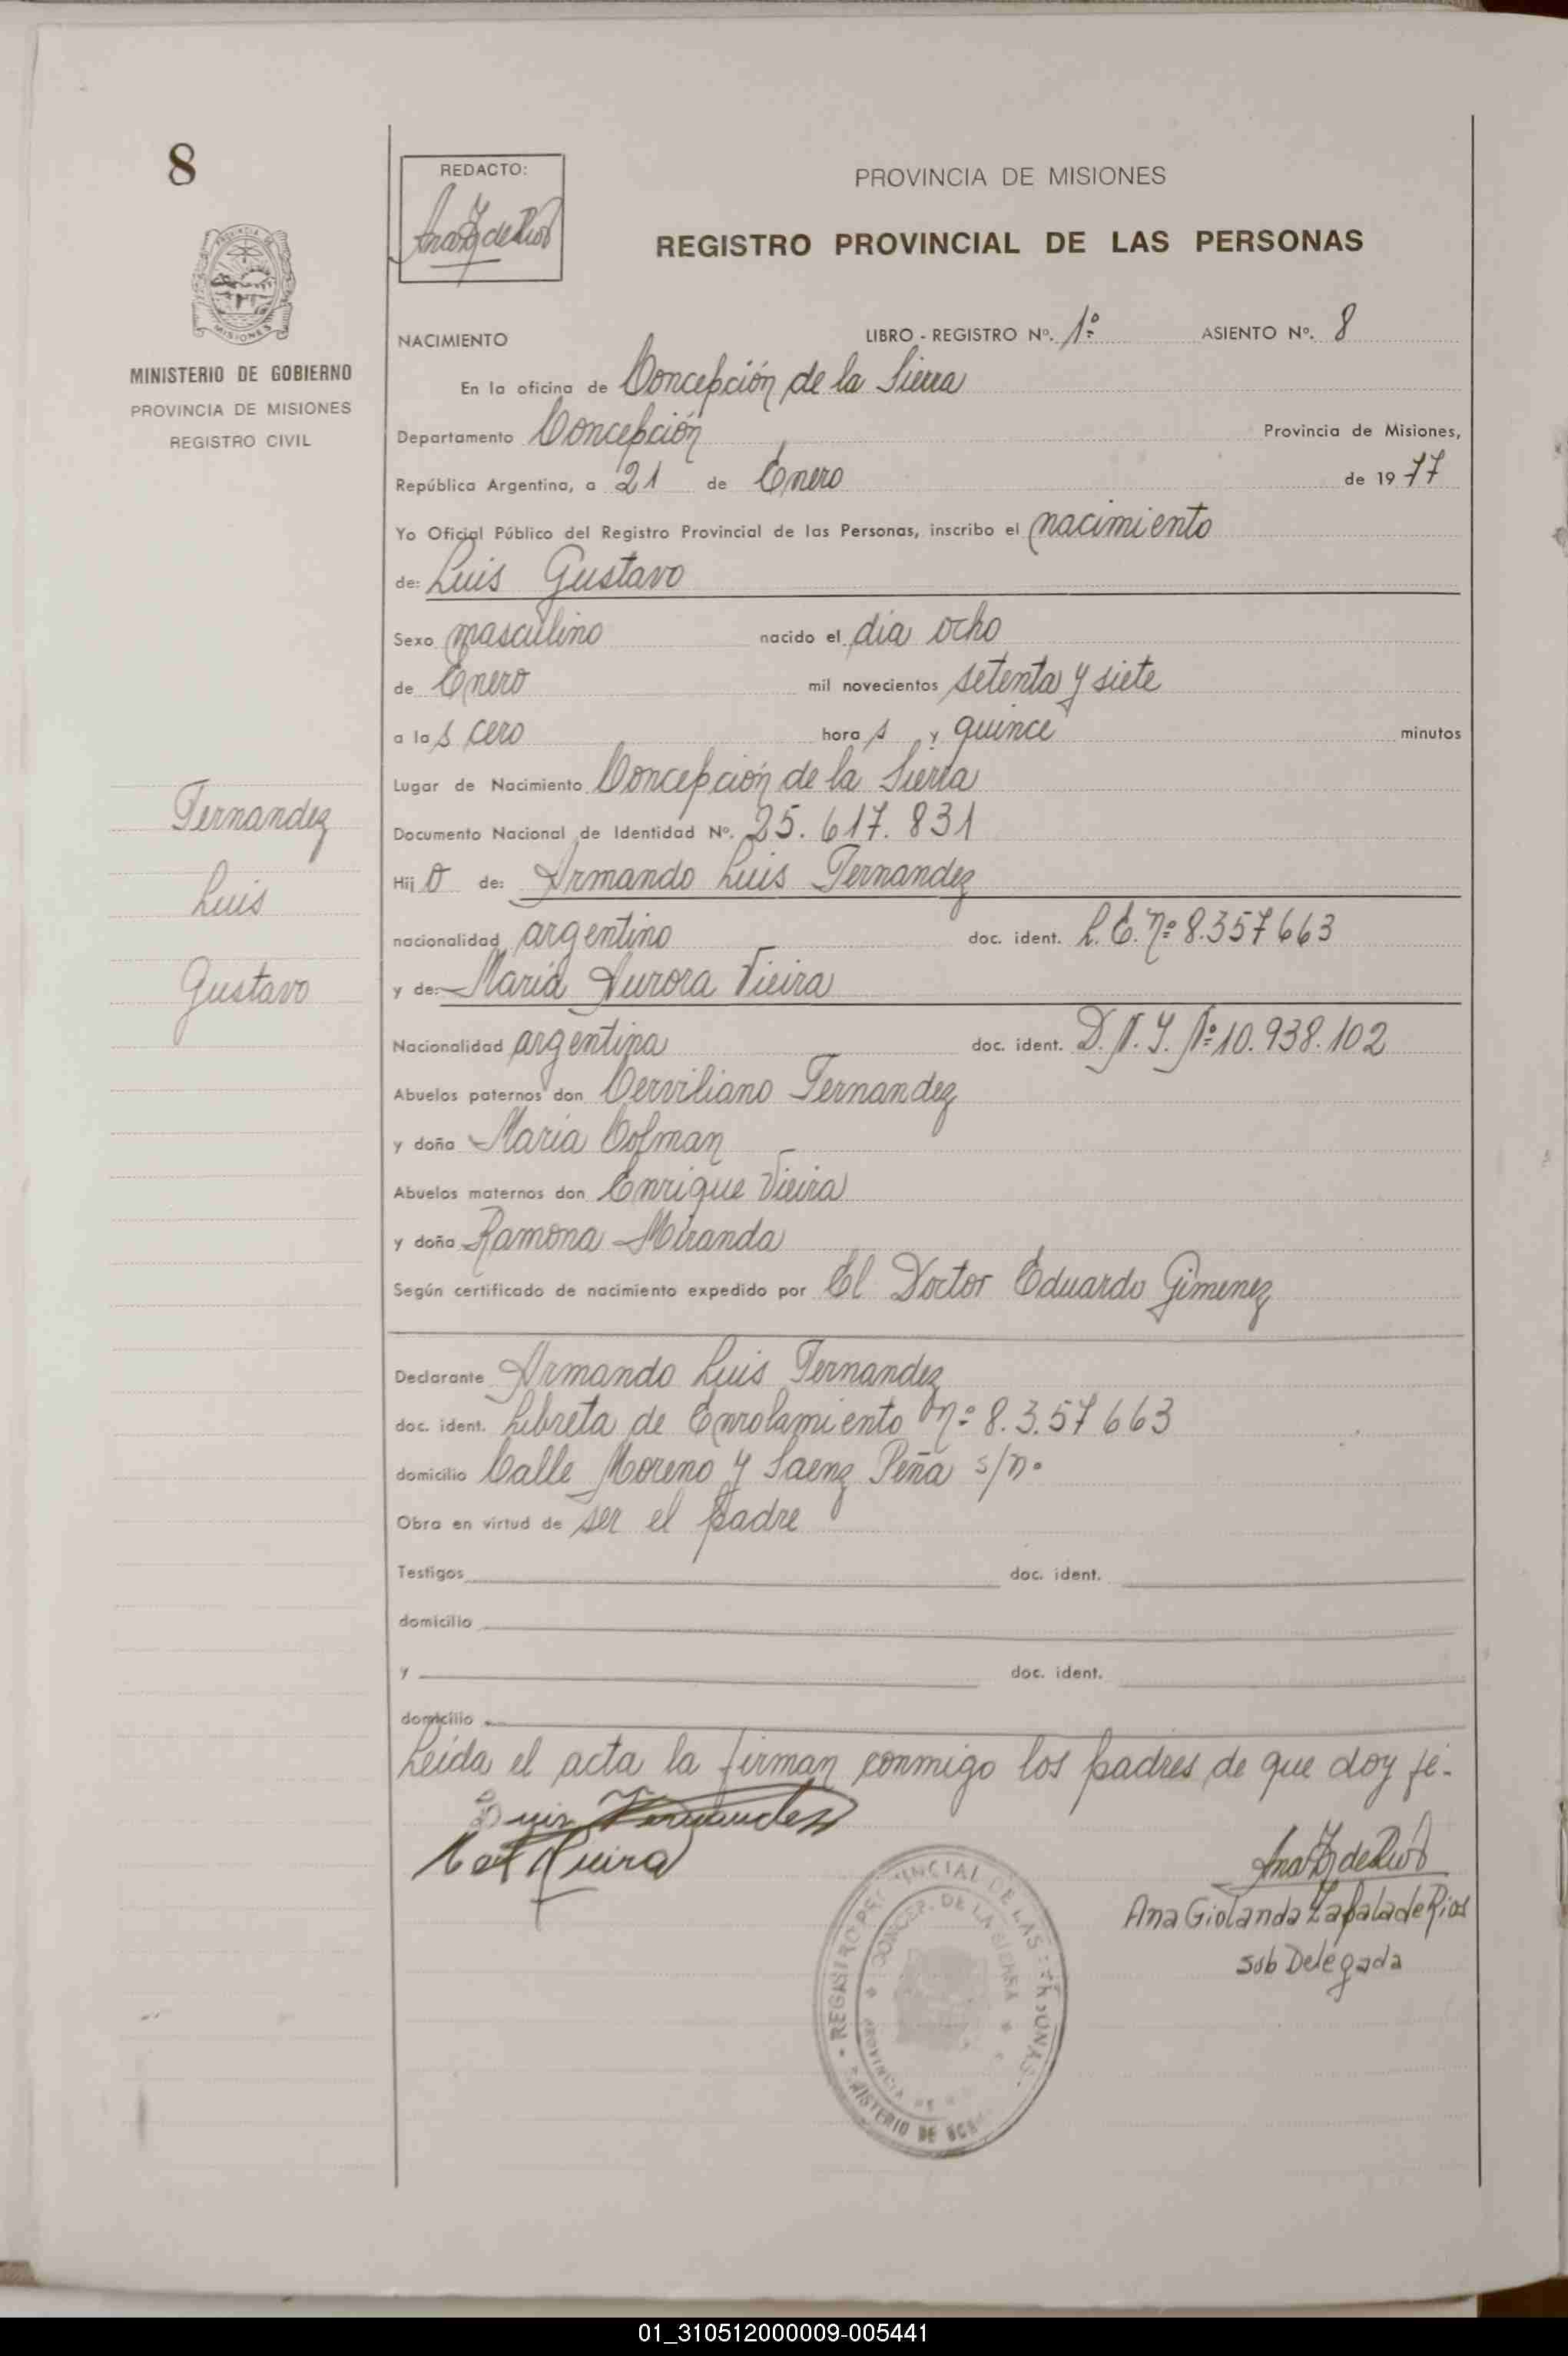 8
PROVINCIA DE MISIONES
MINISTERIO DE GOBIERNO
PROVINCIA DE MISIONES
REGISTRO CIVIL
Fernandez
Luis
Gustavo
REDACTO:
PROVINCIA DE MISIONES
REGISTRO PROVINCIAL DE LAS PERSONAS
NACIMIENTO LIBRO - REGISTRO Nº. 1º ASIENTO Nº. 8
En la oficina de Concepción de la Sierra
Departamento Concepción Provincia de Misiones,
República Argentina, a 21 de Enero de 1977
Yo Oficial Público del Registro Provincial de las Personas, inscribo el nacimiento
de: Luis Gustavo
Sexo masculino nacido el dia ocho
de Enero mil novecientos setenta y siete
a las cero horas y quince minutos
Lugar de Nacimiento Concepción de la Sierra
Documento Nacional de Identidad Nº. 25.617.831
Hijo de: Armando Luis Fernandez
nacionalidad argentino doc. ident. L.E. nº 8.357663
y de: Maria Aurora Vieira
Nacionalidad argentina doc. ident. D.N.I. Nº 10.938.102
Abuelos paternos don Cerviliano Fernandez
y doña Maria Colman
Abuelos maternos don Enrique Vieira
y doña Ramona Miranda
Según certificado de nacimiento expedido por El Doctor Eduardo Gimenez
Declarante Armando Luis Fernandez
doc. ident. Libreta de Enrolamiento nº 8.3.57663
domicilio Calle Moreno y Saenz Peña s/nº
Obra en virtud de ser el padre
Testigos doc. ident.
domicilio
y doc. ident.
domicilio
Leída el acta la firman conmigo los padres de que doy fé.
Luis Fernandez
Ana Giolanda Zapala de Rios
Sub Delegada
REGISTRO PROVINCIAL DE LAS PERSONAS
CONCEP. DE LA SIERRA
PROVINCIA DE
MINISTERIO DE
01_310512000009-005441